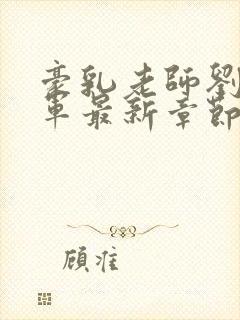 豪乳老師劉
車最新章節
顧准